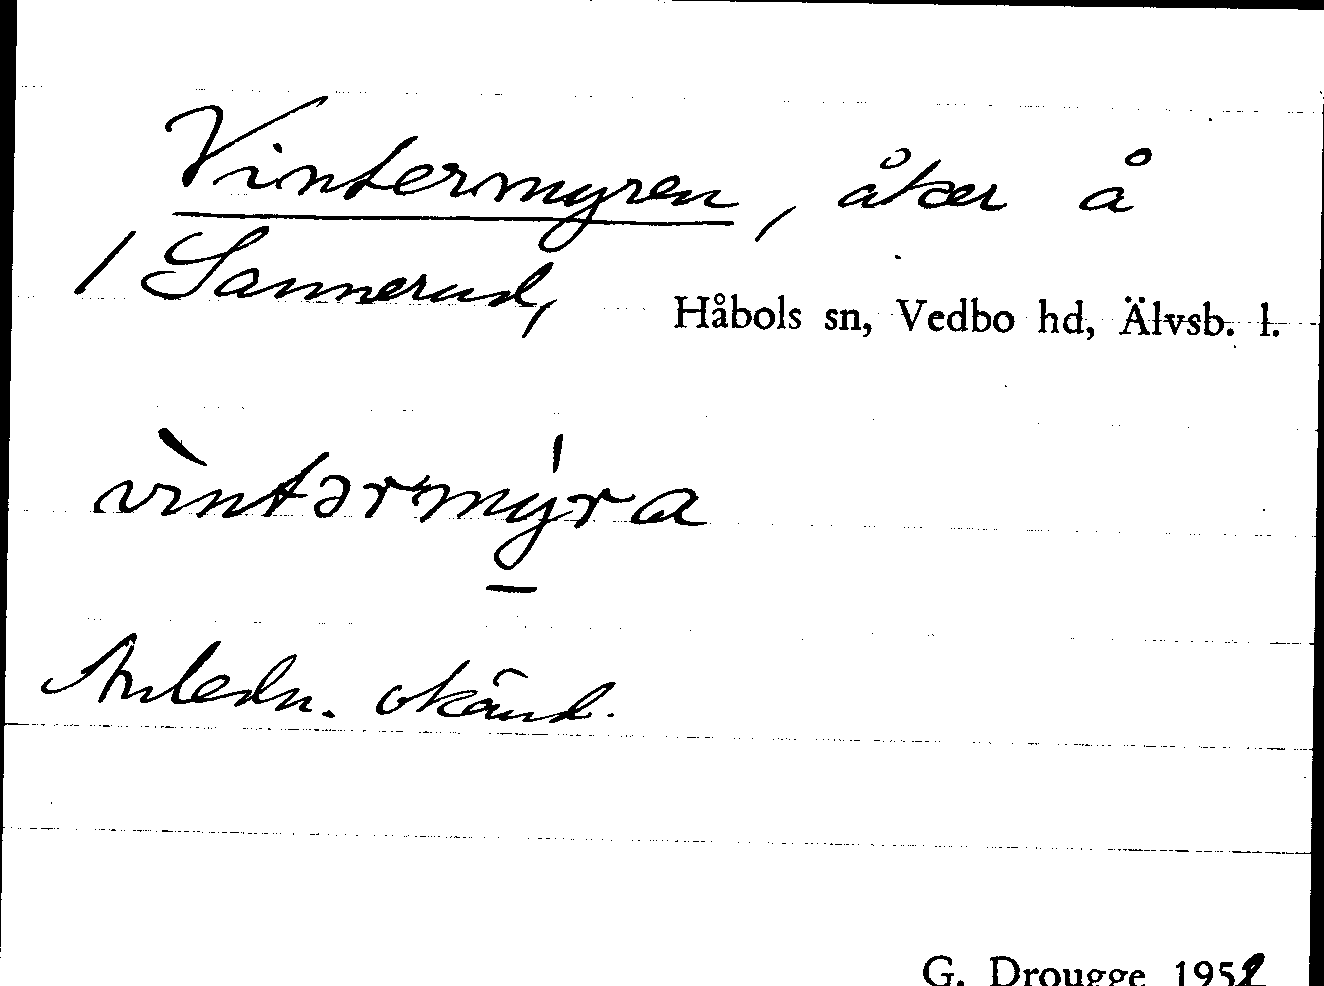 Vintermyren, åker å
/ Sannerud, Håbols sn, Vedbo hd, Älvsb. l.
vìntərmýra
Anledn. okänd.
G. Drougge 1952